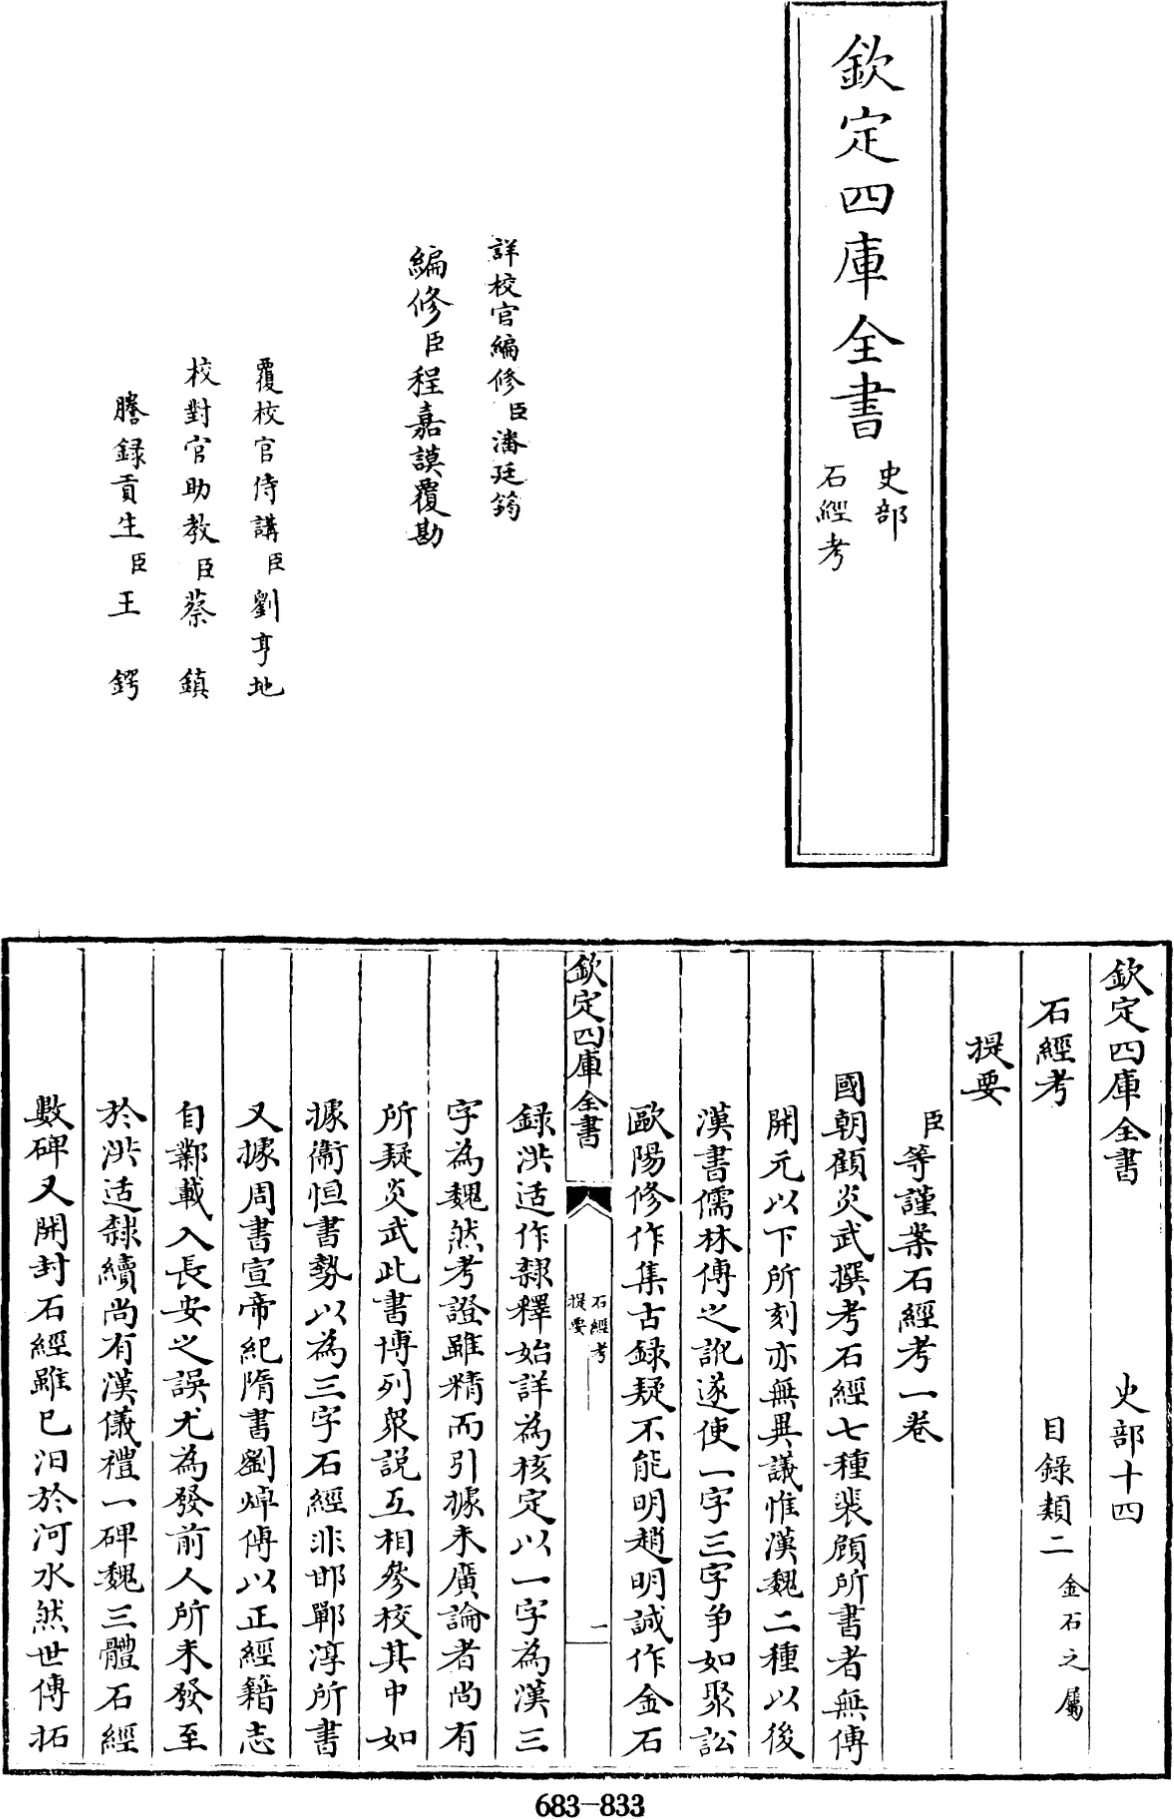 欽定四庫全書
史部
石經考
詳校官編修臣潘廷筠
編修臣程嘉謨覆勘
覆校官侍講臣劉亨地
校對官助教臣蔡鎮
謄錄貢生臣王鍔
欽定四庫全書 史部十四
石經考 目錄類二金石之屬
提要
臣等謹案石經考一卷
國朝顧炎武撰考石經七種裴頠所書者無傳
開元以下所刻亦無異議惟漢魏二種以後
漢書儒林傳之訛遂使一字三字爭如聚訟
歐陽修作集古録疑不能明趙明誠作金石
欽定四庫全書
石經考
提要
一
錄洪适作隸釋始詳為核定以一字為漢三
字為魏然考證雖精而引據未廣論者尚有
所疑炎武此書博列衆說互相參校其中如
據衞恒書勢以為三字石經非邯鄲淳所書
又據周書宣帝紀隋書劉焯傳以正經籍志
自鄴載入長安之誤尤為發前人所未發至
於洪适隸續尚有漢儀禮一碑魏三體石經
數碑又開封石經雖已汩於河水然世傳拓
683-833